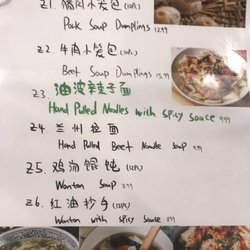 Z1. 猪肉小笼包 (10PC)
Pork Soup Dumplings 12.99
Z2 牛肉小笼包 (10PC)
Beef Soup Dumplings 15.99
Z3. 油泼辣子面
Hand Pulled Noodles with Spicy Sauce 9.99
Z4 兰州拉面
Hand Pulled Beef Noodle Soup
Z5. 鸡汤馄饨 (12PC)
Wonton Soup 8.99
Z6. 红油抄手 (12PC)
Wonton with Spicy Sauce 8.99